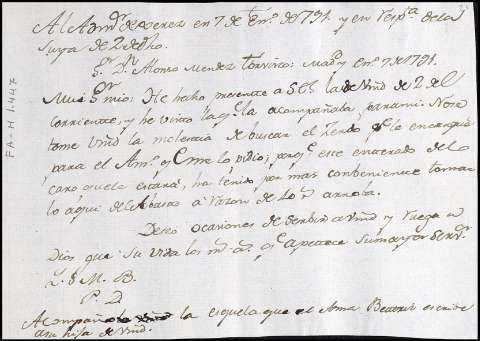 Al Adm.r de Xerez en 7 de En.o de 1791. y en resp.ta de la
suya de 2 de dho.
S.r D.n Alonso Mendez Torvisco: Mad.d y en.o 7 de 1791.
Mui S.r mio: He hecho presente a S.E. la de Vmd de 2 del
corriente, y he visto la q.e la acompañaba para mi. No se
tome Vmd la molestia de buscar el que le encargué
para el Am.o q.e me lo pidio; porq.e este enterado del
caro que la estará, ha tenido por mas conbeniente tomar
lo aqui del Abasto a razon de arroba.
Deseo ocasiones de serbir a Vmd y ruego a
Dios que su vida los m.s a.s q.e apetece su mayor serv.r
Q. S. M. B.
P. D.
Acompaña la esquela que el Ama Beatriz escribe
a su hija de Vmd.
FA-H 1.447